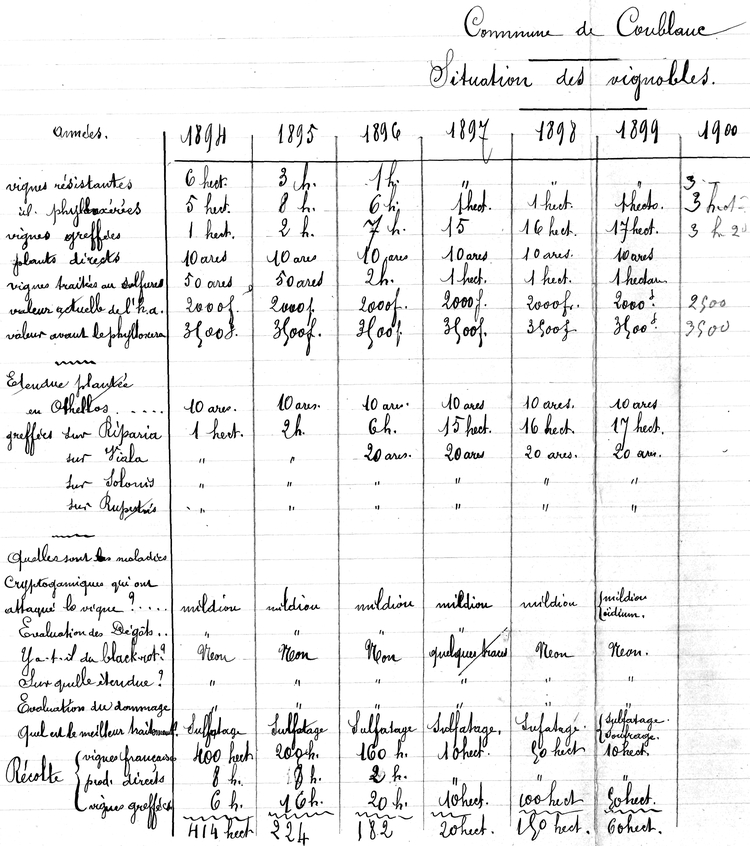 Commune de Coublanc
Situation des vignobles.
années. 1894 1895 1896 1897 1898 1899 1900
vignes résistantes 6 hect. 3 h. 1 h. " " " 3
id. phylloxérées 5 hect. 8 h. 6 h. 1 hect. 1 hect. 1 hecto. 3 hect
vignes greffées 1 hect. 2 h. 7 h. 15 16 hect. 17 hect. 3 h 20
plants directs 10 ares 10 ares 10 ares 10 ares 10 ares. 10 ares
vignes traitées au sulfures 50 ares 50 ares 2h. 1 hect. 1 hect. 1 hectare
valeur actuelle de l'h.a. 2000f. 2000f. 2000f. 2000f. 2000f. 2000f. 2500
valeur avant le phylloxera 3500f. 3500f. 3500f. 3500f. 3500f 3500f. 3500
Etendue plantée
en Othellos..... 10 ares. 10 ares. 10 ares. 10 ares 10 ares. 10 ares
greffées sur Riparia 1 hect. 2h. 6h. 15 hect. 16 hect. 17 hect.
sur Viala " " 20 ares. 20 ares 20 ares. 20 ares.
sur Solonis " " " " " "
sur Rupestris " " " " " "
Quelles sont les maladies
Cryptogamiques qui ont
attaqué la vigne ?..... mildiou mildiou mildiou mildiou mildiou mildiou
oïdium.
Evaluation des Dégâts.. " " "
Y a-t-il du black-rot? Neon Non Non quelques traces Neon Neon.
Sur quelle étendue ? " " " " " "
Evaluation du dommage " " " " " "
Quel est le meilleur traitement? Sulfatage Sulfatage Sulfatage Sulfatage. Sufatage. sulfatage.
soufrage.
Récolte vignes françaises 400 hect 200 h. 160 h. 10 hect. 50 hect 10 hect.
prod. directs 8 h. 8 h. 2 h. " " "
vignes greffées 6 h. 16 h. 20 h. 10 hect. 100 hect 50 hect.
414 hect 224 182 20 hect. 150 hect. 60 hect.